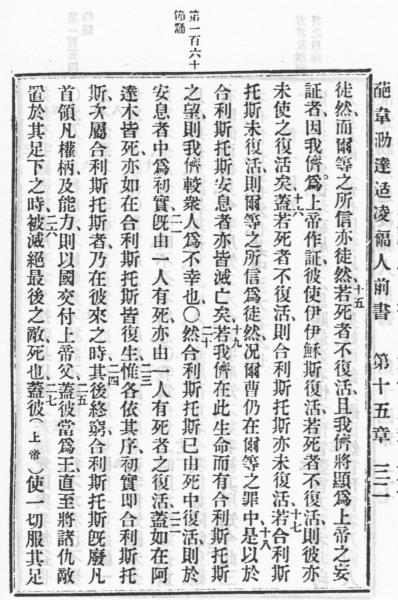 葩韋泐達适凌福人前書　第十五章　三一
第一百六十
節誦
徒然、而爾等之所信亦徒然、若死者不復活、十五且我儕將顯爲上帝之妄
証者、因我儕爲上帝作証、彼使伊伊穌斯復活、若死者不復活、則彼亦
未使之復活矣、十六蓋若死者不復活、則合利斯托斯亦未復活、十七若合利斯
托斯未復活、則爾等之所信爲徒然、况爾曹仍在爾等之罪中、十八是以於
合利斯托斯安息者、亦皆滅亡矣、十九若我儕在此生命而有合利斯托斯
之望、則我儕較衆人爲不幸也、〇二十然合利斯托斯已由死中復活、則於
安息者中爲初實、二一旣由一人有死、亦由一人有死者之復活、二二蓋如在阿
達木皆死、亦如在合利斯托斯皆復生、二三惟各依其序、初實即合利斯托
斯、次屬合利斯托斯者、乃在彼來之時、二四其後終窮、合利斯托斯旣廢凡
首領凡權柄、及能力、則以國交付上帝父、二五蓋彼當爲王、直至將諸仇敵
置於其足下之時、二六被滅絕最後之敵、死也、二七蓋彼(上帝)使一切服其足